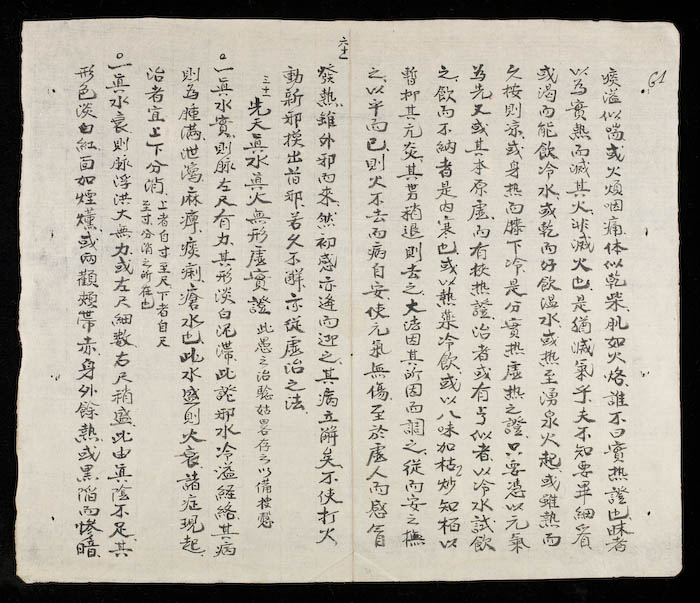 61
痰溢似喘或火煩咽痛体似乾柴肌如火烙誰不曰實熱證也昧者
以為實熱而滅其火非滅火也是猶滅氣乎夫不知要畢細看
或渴而能飲冷水或乾而好飲温水或熱至湧泉火起或雖熱而
久按則凉或身熱而膝下冷是分實熱虛熱之證只要憑以元氣
為先又或其本原虛而有挍熱證治者或有似者以冷水試飲
之飲而不納者是内衰也或以熱藥冷飲或以八味加枯炒知栢以
暫抑其亢炎其勇稍退則去之大法因其所因而調之從而安之撫
之以平而已則火不去而病自安使元氣無傷至於虛人而感冒
六十一
發熱雖外邪而來然初感亦逢而迎之其病立解矣不使打火
動斬邪模出苗邪若久不觧亦從虛治之法
三十一 先天真水真火無形虛實證 此愚之治驗姑畧存之以備披覽
一真水實則脉左尺有力其形淡白泥滯此證邪水冷溢経絡其病
則為腫滿泄瀉麻痺痰痢瘡水也此水盛則火衰諸症現起
治者宜上下分消 上者自寸至尺下者自尺
至寸分消之所在也
一真水衰則脉浮洪大無力或左尺細数右尺稍盛此由真陰不足其
形色淡白紅面如煙燻或兩顴頰帶赤身外餘熱或黒陷而慘暗